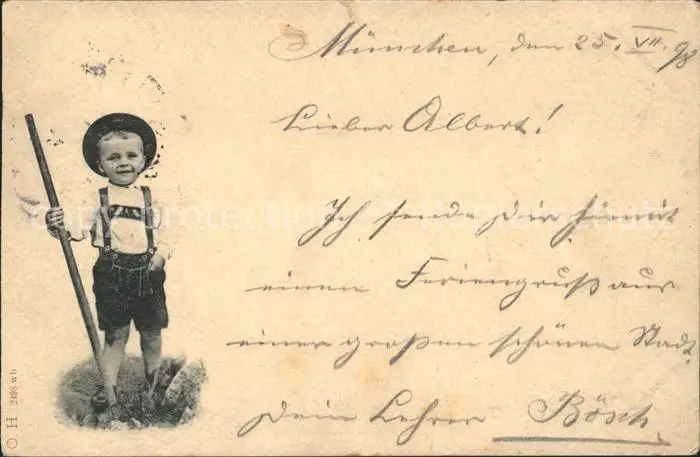 München, den 25. VII. 98
Lieber Albert!
Ich sende Dir hiermit
einen Feriengruß aus
einer großen schönen Stadt.
Dein Lehrer Bösch
O. H 2498 wb
copyright protection